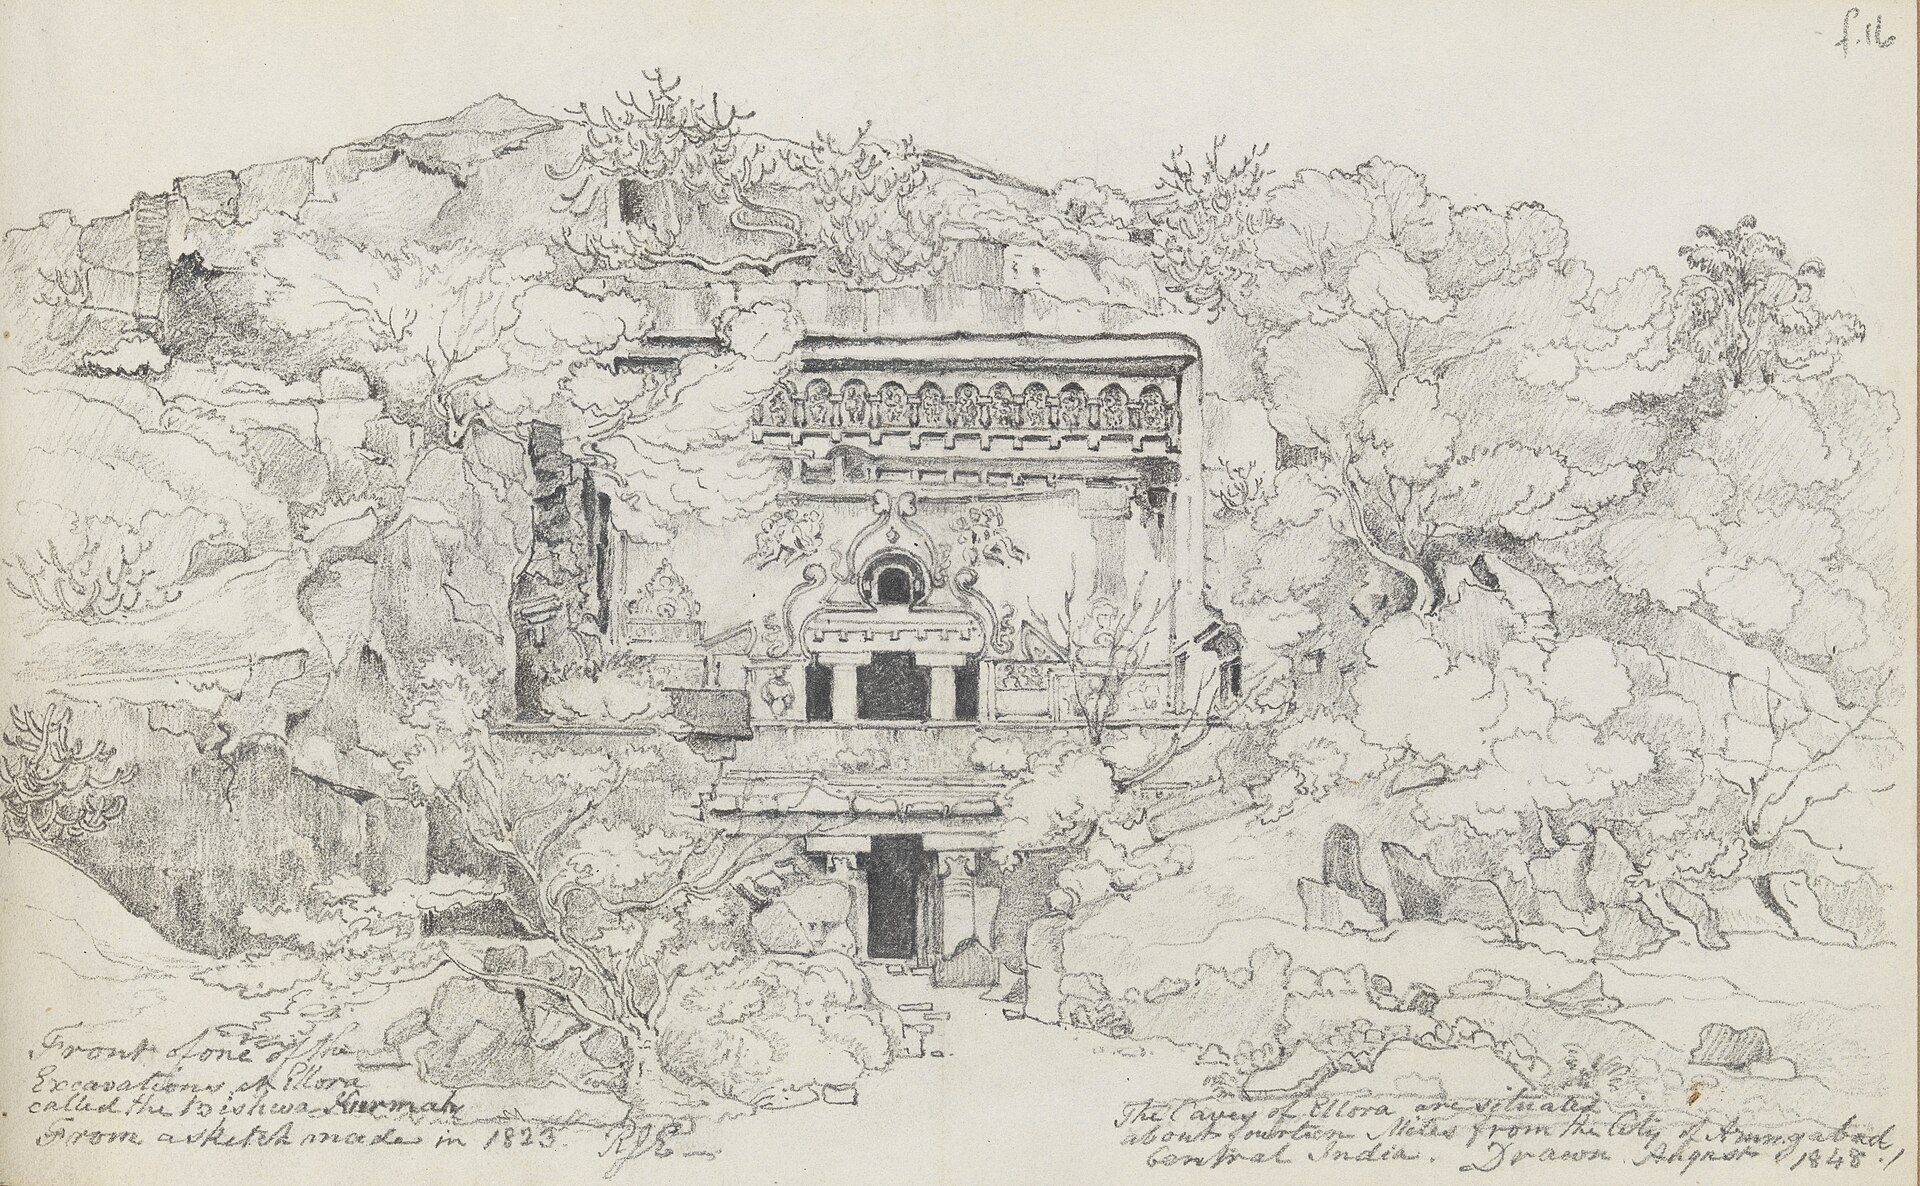 f.16
Front of one of the
Excavations at Ellora
called the Bishwa Kurmah
From a sketch made in 1823. RJE
The Caves of Ellora are situated
about fourteen Miles from the City of Arungabad
Central India. Drawn August 1848.